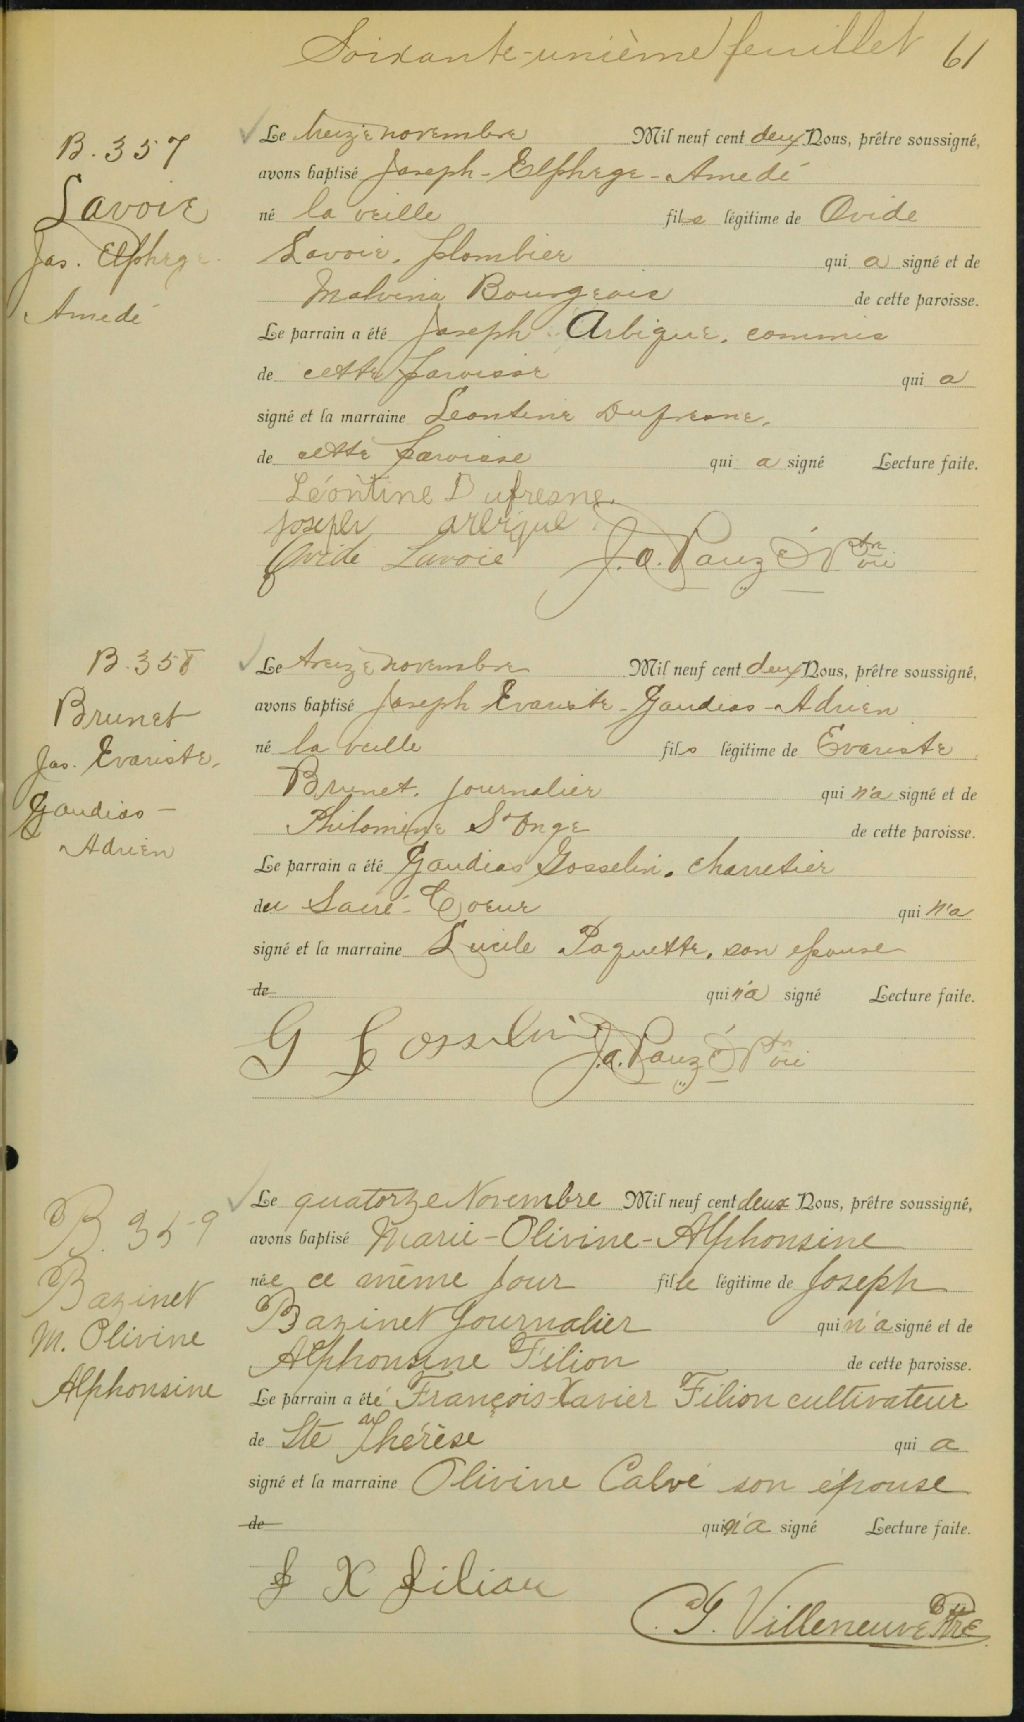 Soixante-unième feuillet 61
B. 357
Lavoie
Jos. Elphege
Amedé
Le treize novembre Mil neuf cent deux Nous, prêtre soussigné,
avons baptisé Joseph-Elphege-Amedé
né la veille fils légitime de Ovide
Lavoie, plombier qui a signé et de
Malvina Bourgeois de cette paroisse.
Le parrain a été Joseph Arbique, commis
de cette paroisse qui a
signé et la marraine Leontine Dufresne,
de cette paroisse qui a signé Lecture faite.
Léontine Dufresne
Joseph Arbique
Ovide Lavoie J. A. Pauzé Ptre vic
B. 358
Brunet
Jos. Evariste,
Gaudias-
Adrien
Le treize novembre Mil neuf cent deux Nous, prêtre soussigné,
avons baptisé Joseph Evariste-Gaudias-Adrien
né la veille fils légitime de Evariste
Brunet, journalier qui n'a signé et de
Philomène St Onge de cette paroisse.
Le parrain a été Gaudias Gosselin, charretier
du Sacré-Coeur qui n'a
signé et la marraine Lucile Paquette, son epouse
de qui n'a signé Lecture faite.
G Gosselin J. A. Pauzé Ptre vic
B. 359
Bazinet
M. Olivine
Alphonsine
Le quatorze Novembre Mil neuf cent deux Nous, prêtre soussigné,
avons baptisé Marie-Olivine-Alphonsine
née ce même jour fille légitime de Joseph
Bazinet Journalier qui n'a signé et de
Alphonsine Filion de cette paroisse.
Le parrain a été François-Xavier Filion cultivateur
de Ste Thérèse qui a
signé et la marraine Olivine Calvé son épouse
de qui n'a signé Lecture faite.
F X Filion
C. G. Villeneuve Ptre